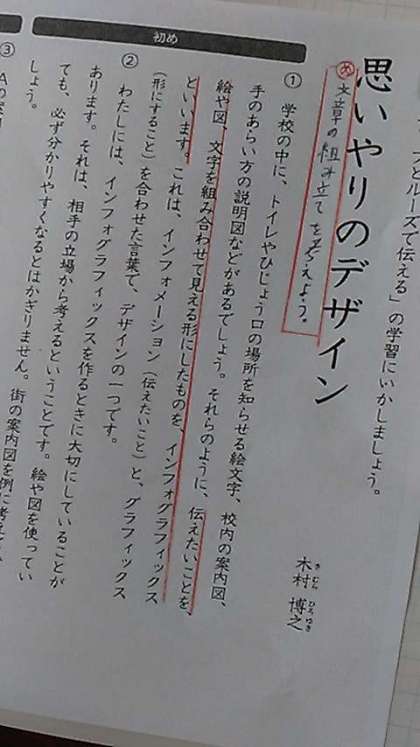 とルーズで伝える」の学習にいかしましょう。
思いやりのデザイン
木村 博之
きむら ひろゆき
め 文章の組み立てを考えよう。
初め
① 学校の中に、トイレやひじょう口の場所を知らせる絵文字、校内の案内図、
手のあらい方の説明図などがあるでしょう。それらのように、伝えたいことを、
絵や図、文字を組み合わせて見える形にしたものを、インフォグラフィックス
といいます。これは、インフォメーション（伝えたいこと）と、グラフィックス
（形にすること）を合わせた言葉で、デザインの一つです。
② わたしには、インフォグラフィックスを作るときに大切にしていることが
あります。それは、相手の立場から考えるということです。絵や図を使ってい
ても、必ず分かりやすくなるとはかぎりません。街の案内図を例に考え
しょう。
③